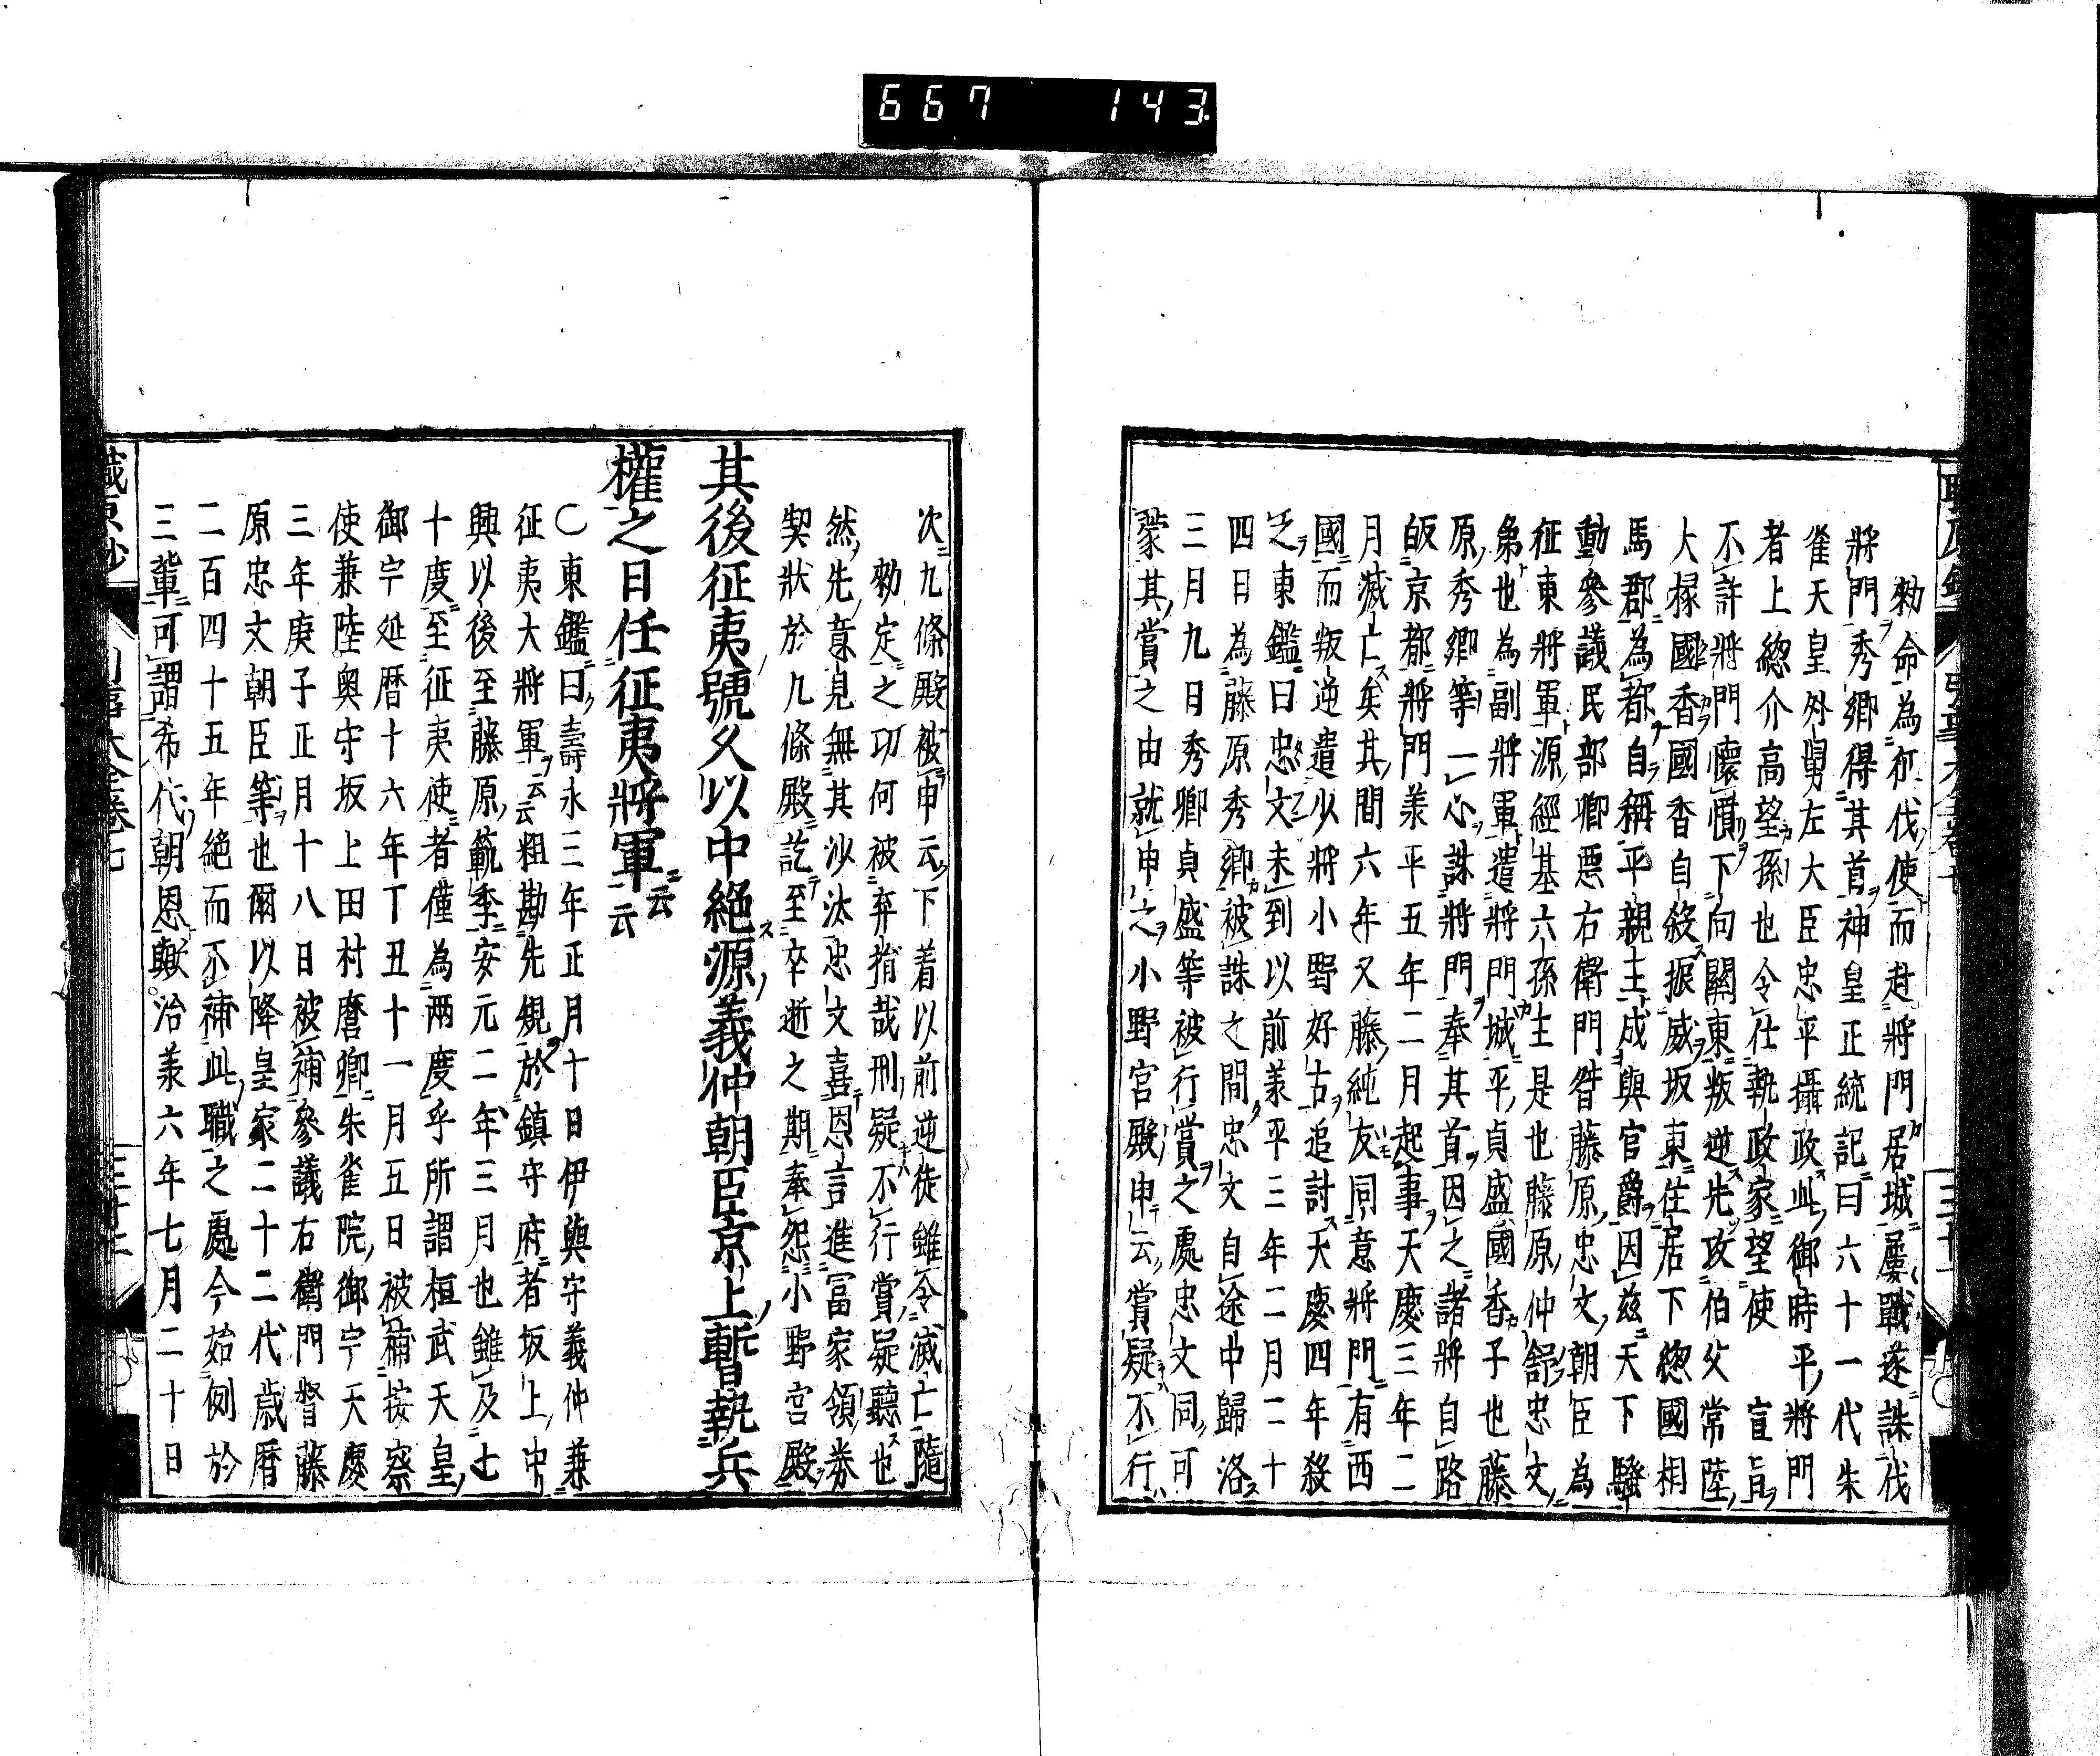 667 143
勅命為征伐使而赴將門居城屡戰遂誅伐
將門秀卿得其首神皇正統記曰六十一代朱
雀天皇外舅左大臣忠平攝政此御時平將門
者上総介高望孫也令仕執政家望使宣旨
不許將門懐憤下向關東叛逆先攻伯父常陸
大掾國香國香自殺振威坂東住居下総國相
馬郡為都自稱平親王成與官爵因茲天下騒
動參議民部卿悪右衛門督藤原忠文朝臣為
征東將軍源經基六孫王是也藤原仲舒忠文
弟也為副將軍遣將門城平貞盛國香子也藤
原秀卿等一心誅將門奉其首因之諸將自路
皈京都將門羕平五年二月起事天慶三年二
月滅亡矣其間六年又藤純友同意將門有西
國而叛逆遣少將小野好古追討天慶四年殺
之東鑑曰忠文未到以前羕平三年二月二十
四日為藤原秀卿被誅之間忠文自途中歸洛
三月九日秀卿貞盛等被行賞之處忠文同可
蒙其賞之由就申之小野宮殿申云賞疑不行
次九條殿被申云下着以前逆徒雖令滅亡隨
勅定之功何被弃捐哉刑疑不行賞疑聽也
然先意見無其沙汰忠文喜恩言進冨家領券
契狀於九條殿訖至卒逝之期奉怨小野宮殿
其後征夷號久以中絶源義仲朝臣京上暫執兵
權之日任征夷將軍云云
〇東鑑曰壽永三年正月十日伊與守義仲兼
征夷大將軍云云粗勘先規於鎮守府者坂上中
興以後至藤原範季安元二年三月也雖及七
十度至征夷使者僅為兩度乎所謂桓武天皇
御宇延暦十六年丁丑十一月五日被補按察
使兼陸奥守坂上田村麿卿朱雀院御宇天慶
三年庚子正月十八日被補參議右衛門督藤
原忠文朝臣等也爾以降皇家二十二代歳暦
二百四十五年絶而不補此職之處今始例於
三輩可謂希代朝恩歟治羕六年七月二十日